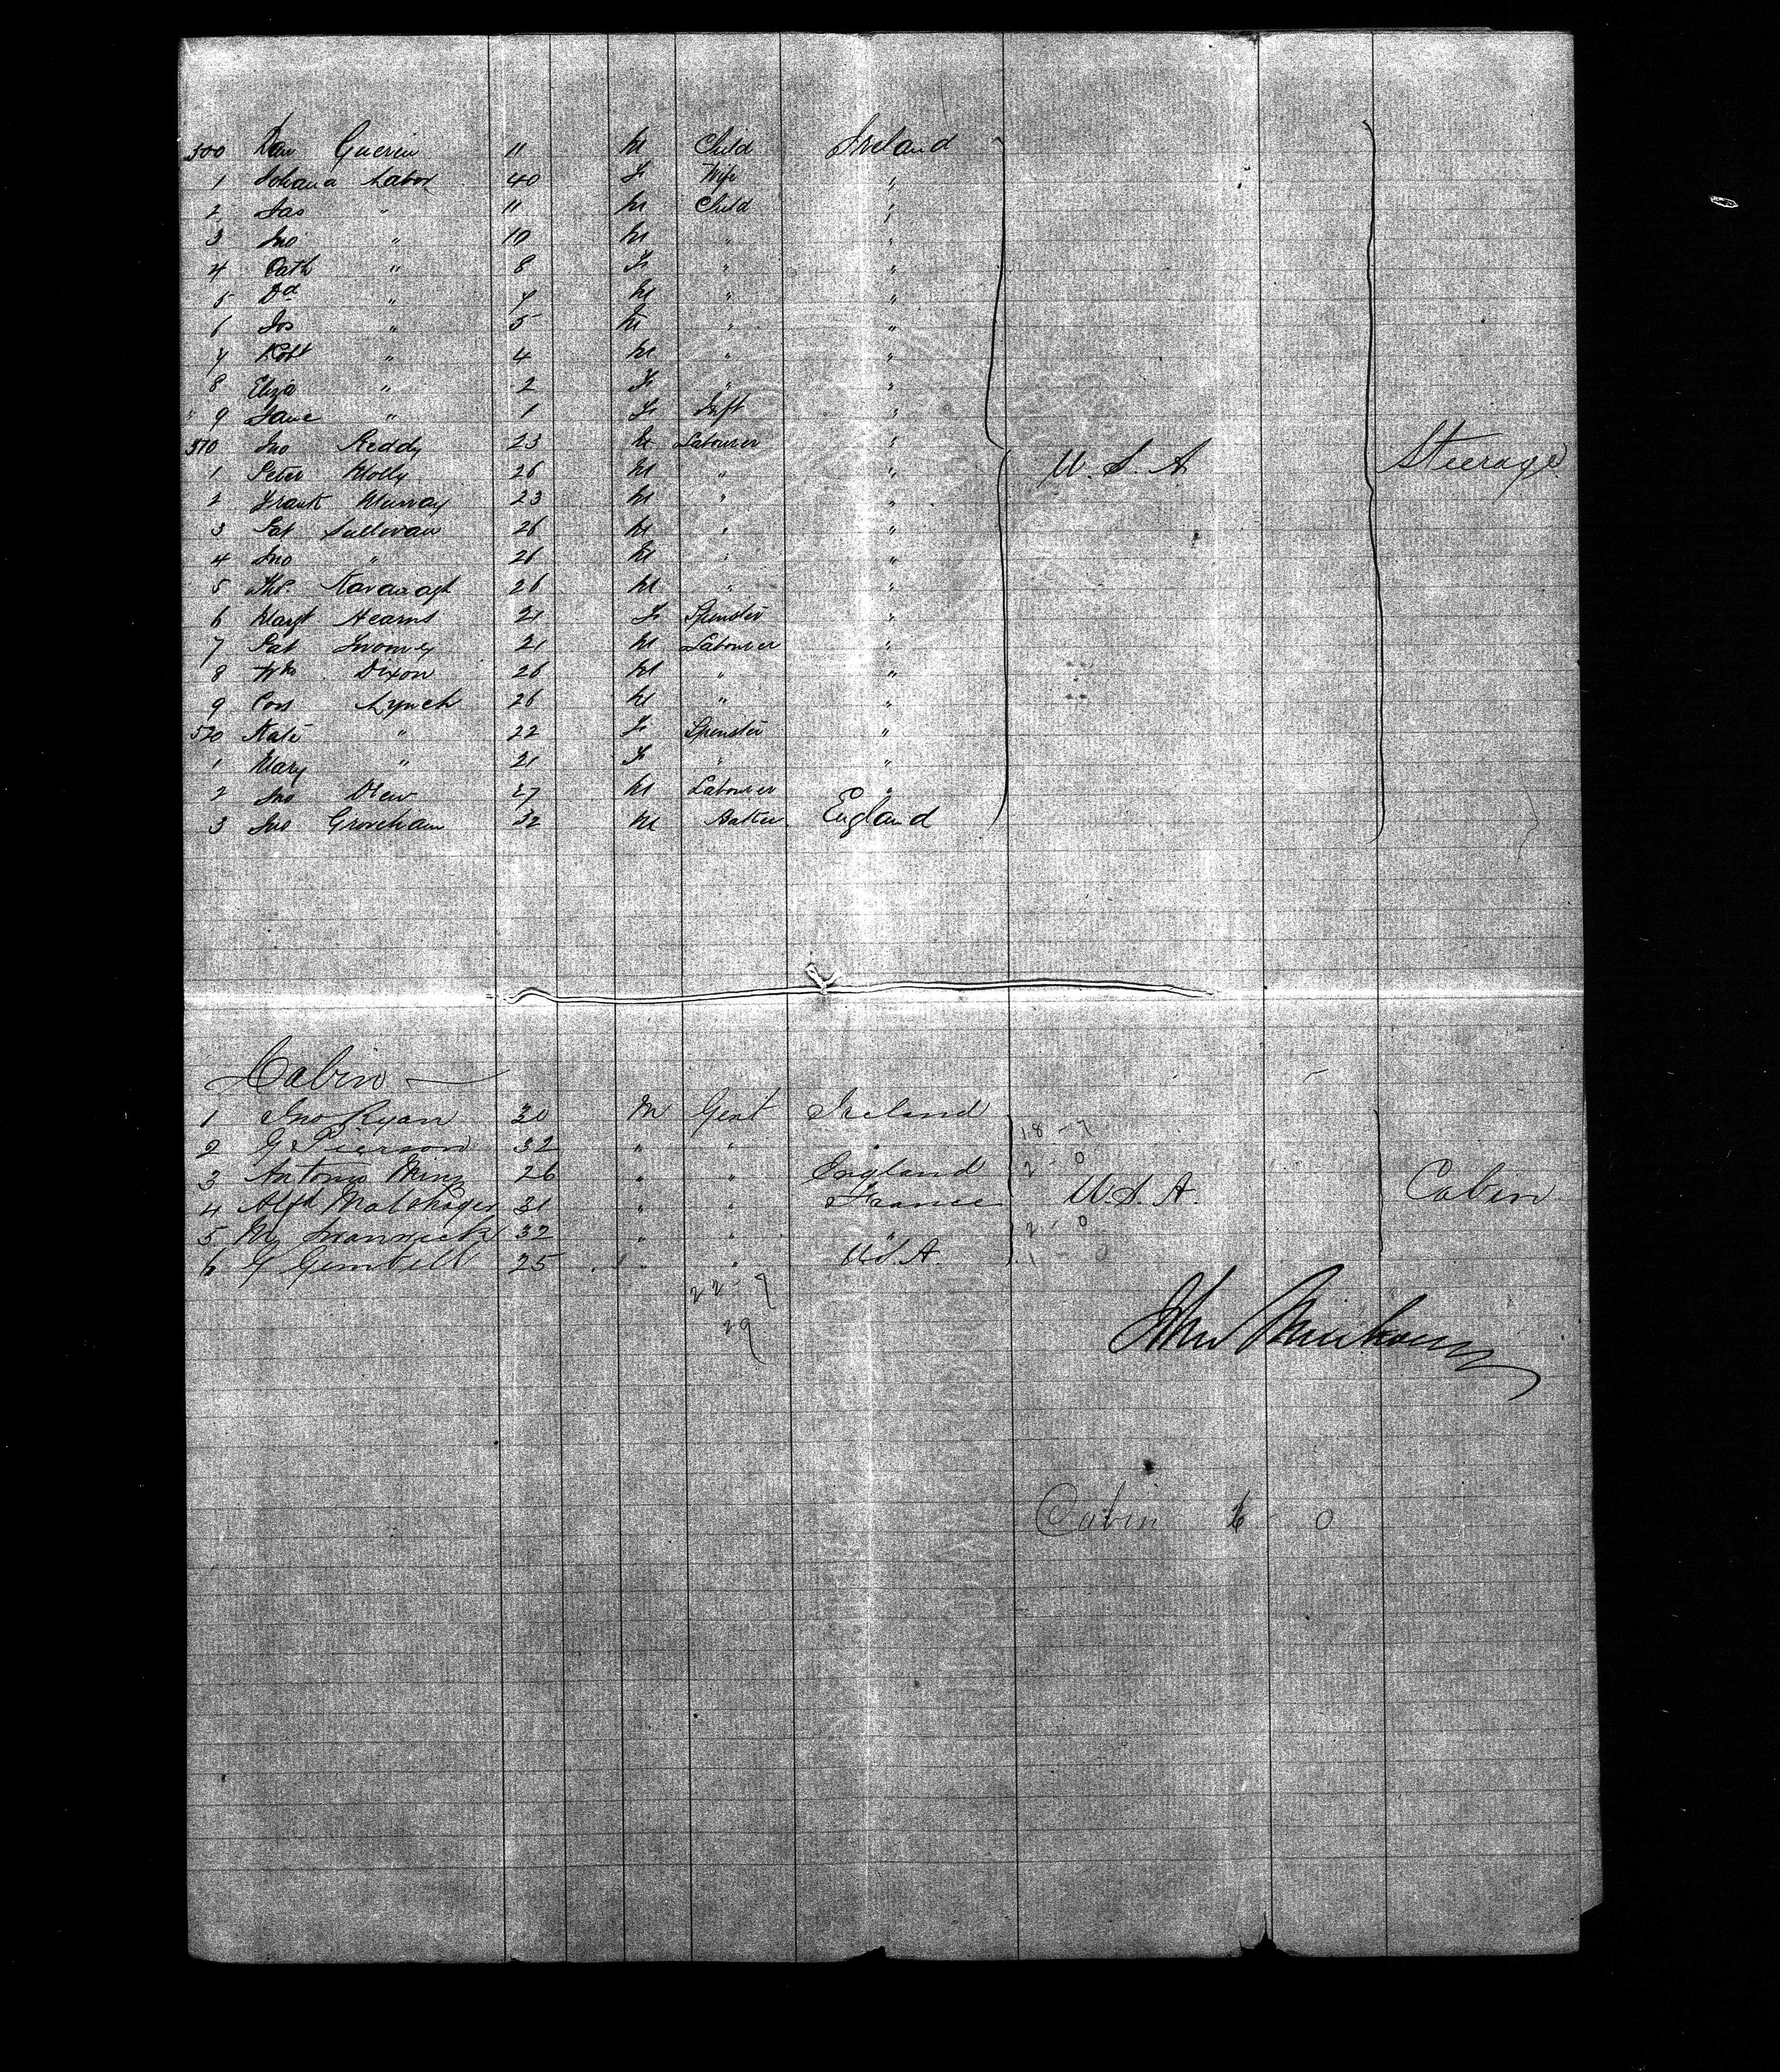 500 Dan Guerin 11 M Child Ireland
1 Johana Labor 40 F Wife "
2 Jas " 11 M Child "
3 Jno " 10 M " "
4 Cath " 8 F " "
5 Dd " 7 M " "
6 Jos " 5 M " "
7 Robt " 4 M " "
8 Eliza " 2 F " "
" 9 Jane " 1 F Inft "
510 Jno Reddy 23 M Labourer " U.S.A. Steerage
1 Peter Molly 26 M " "
2 Frank Murray 23 M " "
3 Pat Sullivan 26 M " "
4 Jno " 26 M " "
5 Thos. Kavanagh 26 M " "
6 Margt Hearns 21 F Spinster "
7 Pat Twomey 21 M Labourer "
8 Wm Dixon 26 M " "
9 Con Lynch 26 M " "
520 Kate " 22 F Spinster "
1 Mary " 21 F " "
2 Jno Drew 27 M Labourer "
3 Jno 32 M England
Cabin
1 Jno Ryan 30 M Gent Ireland
2 G Pierson 32 " " " 18 - 7
3 Antonio 26 " " England 2 - 0
4 Alfd 31 " " France U.S.A. Cabin
5 32 " " " 2 - 0
6 G 25 " " U.S.A. 1 - 0
22 - 7
29
John
Cabin 6 0